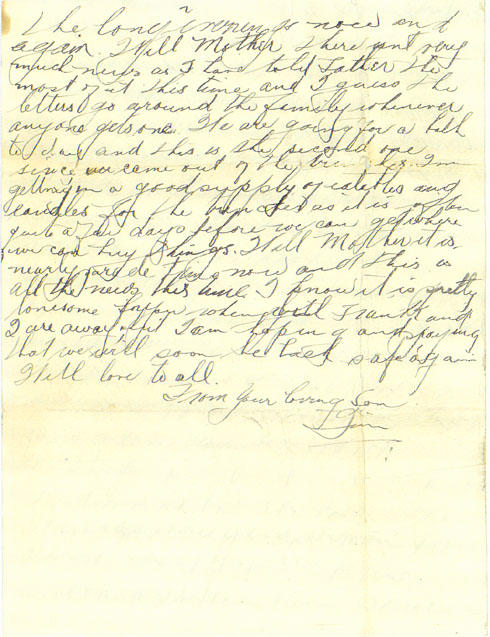 the long evenings now and
again. Well Mother there isnt very
much news as I have told Father the
most of it this time and I guess the
letters go around the family whenever
anyone gets one. We are going for a bath
to day and this is the second one
since we came out of the trenches. Im
getting in a good supply of and
candles for the trenches as it is often
quite a few days before we can get where
we can buy things. Well Mother it is
nearly parade time now and this is
all the news this time. I know it is pretty
lonesome for you when both Frank and
I are away but I am hoping and praying
that we will soon be back safe again
Will love to all.
From Your loving Son
Jim